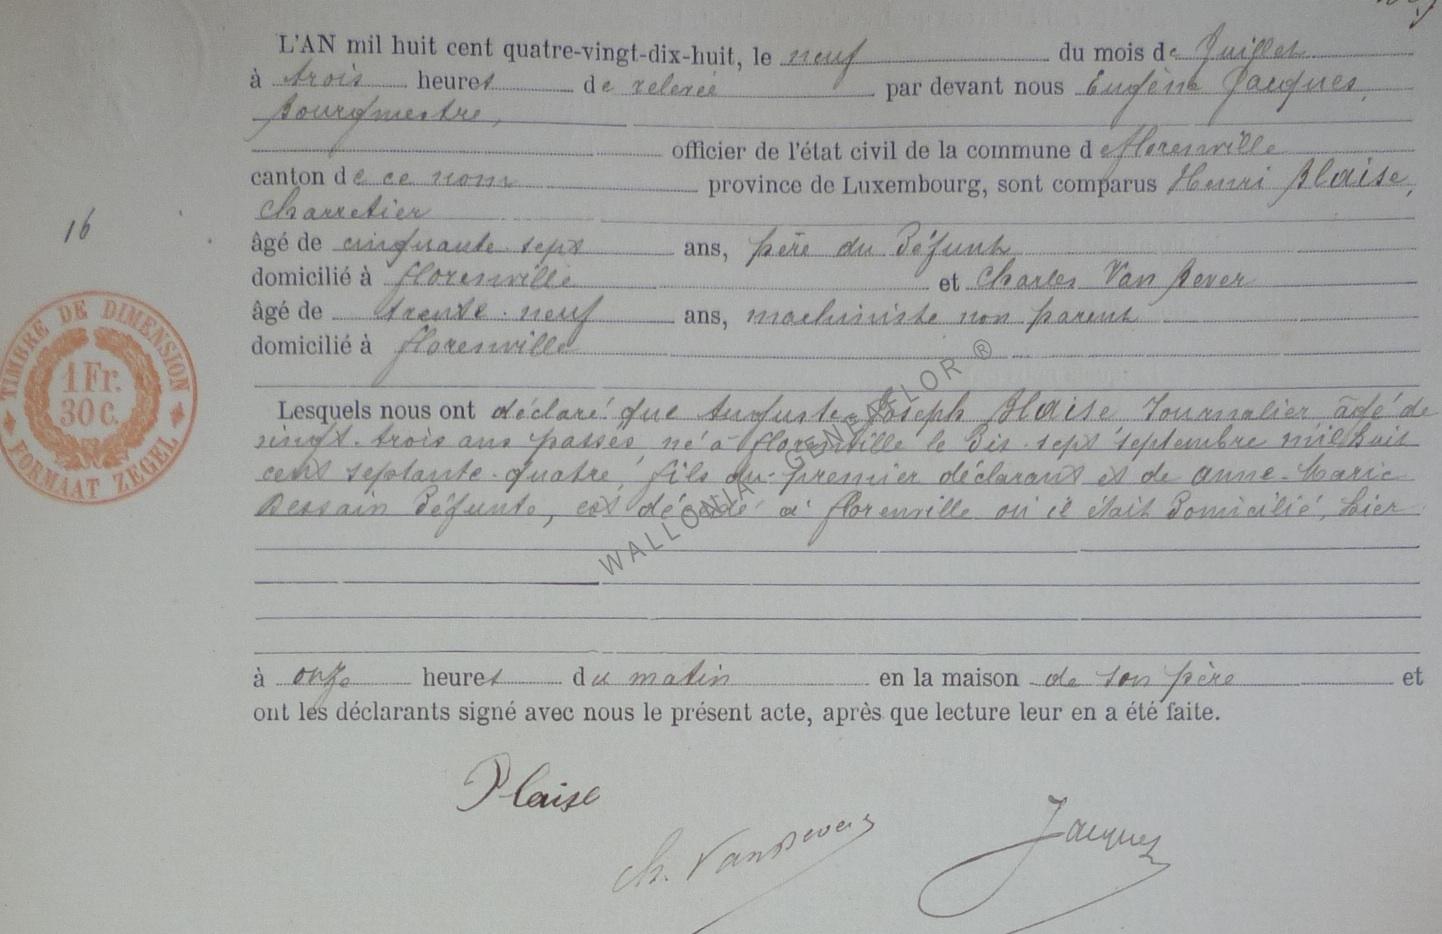 L'AN mil huit cent quatre-vingt-dix-huit, le neuf du mois de Juillet
à trois heures de relevée par devant nous Eugène Jacques,
Bourgmestre,
officier de l'état civil de la commune de Florenville
canton de ce nom province de Luxembourg, sont comparus Henri Blaise,
Charretier
16
âgé de cinquante-sept ans, père du Défunt
domicilié à Florenville et Charles Van Bever
âgé de trente-neuf ans, machiniste non parent
domicilié à Florenville
TIMBRE DE DIMENSION
1 Fr.
30 C.
FORMAAT ZEGEL
Lesquels nous ont déclaré que Auguste-Joseph Blaise, Journalier âgé de
vingt-trois ans passés, né à Florenville le Dix-sept septembre mil huit
cent septante-quatre, fils du premier déclarant et de Anne-Marie
Dessain Défunte, est décédé à Florenville où il était Domicilié, hier
WALLONIA GENEAFLOR ®
à onze heures du matin en la maison de son père et
ont les déclarants signé avec nous le présent acte, après que lecture leur en a été faite.
Blaise
Ch. Van Bever
Jacques